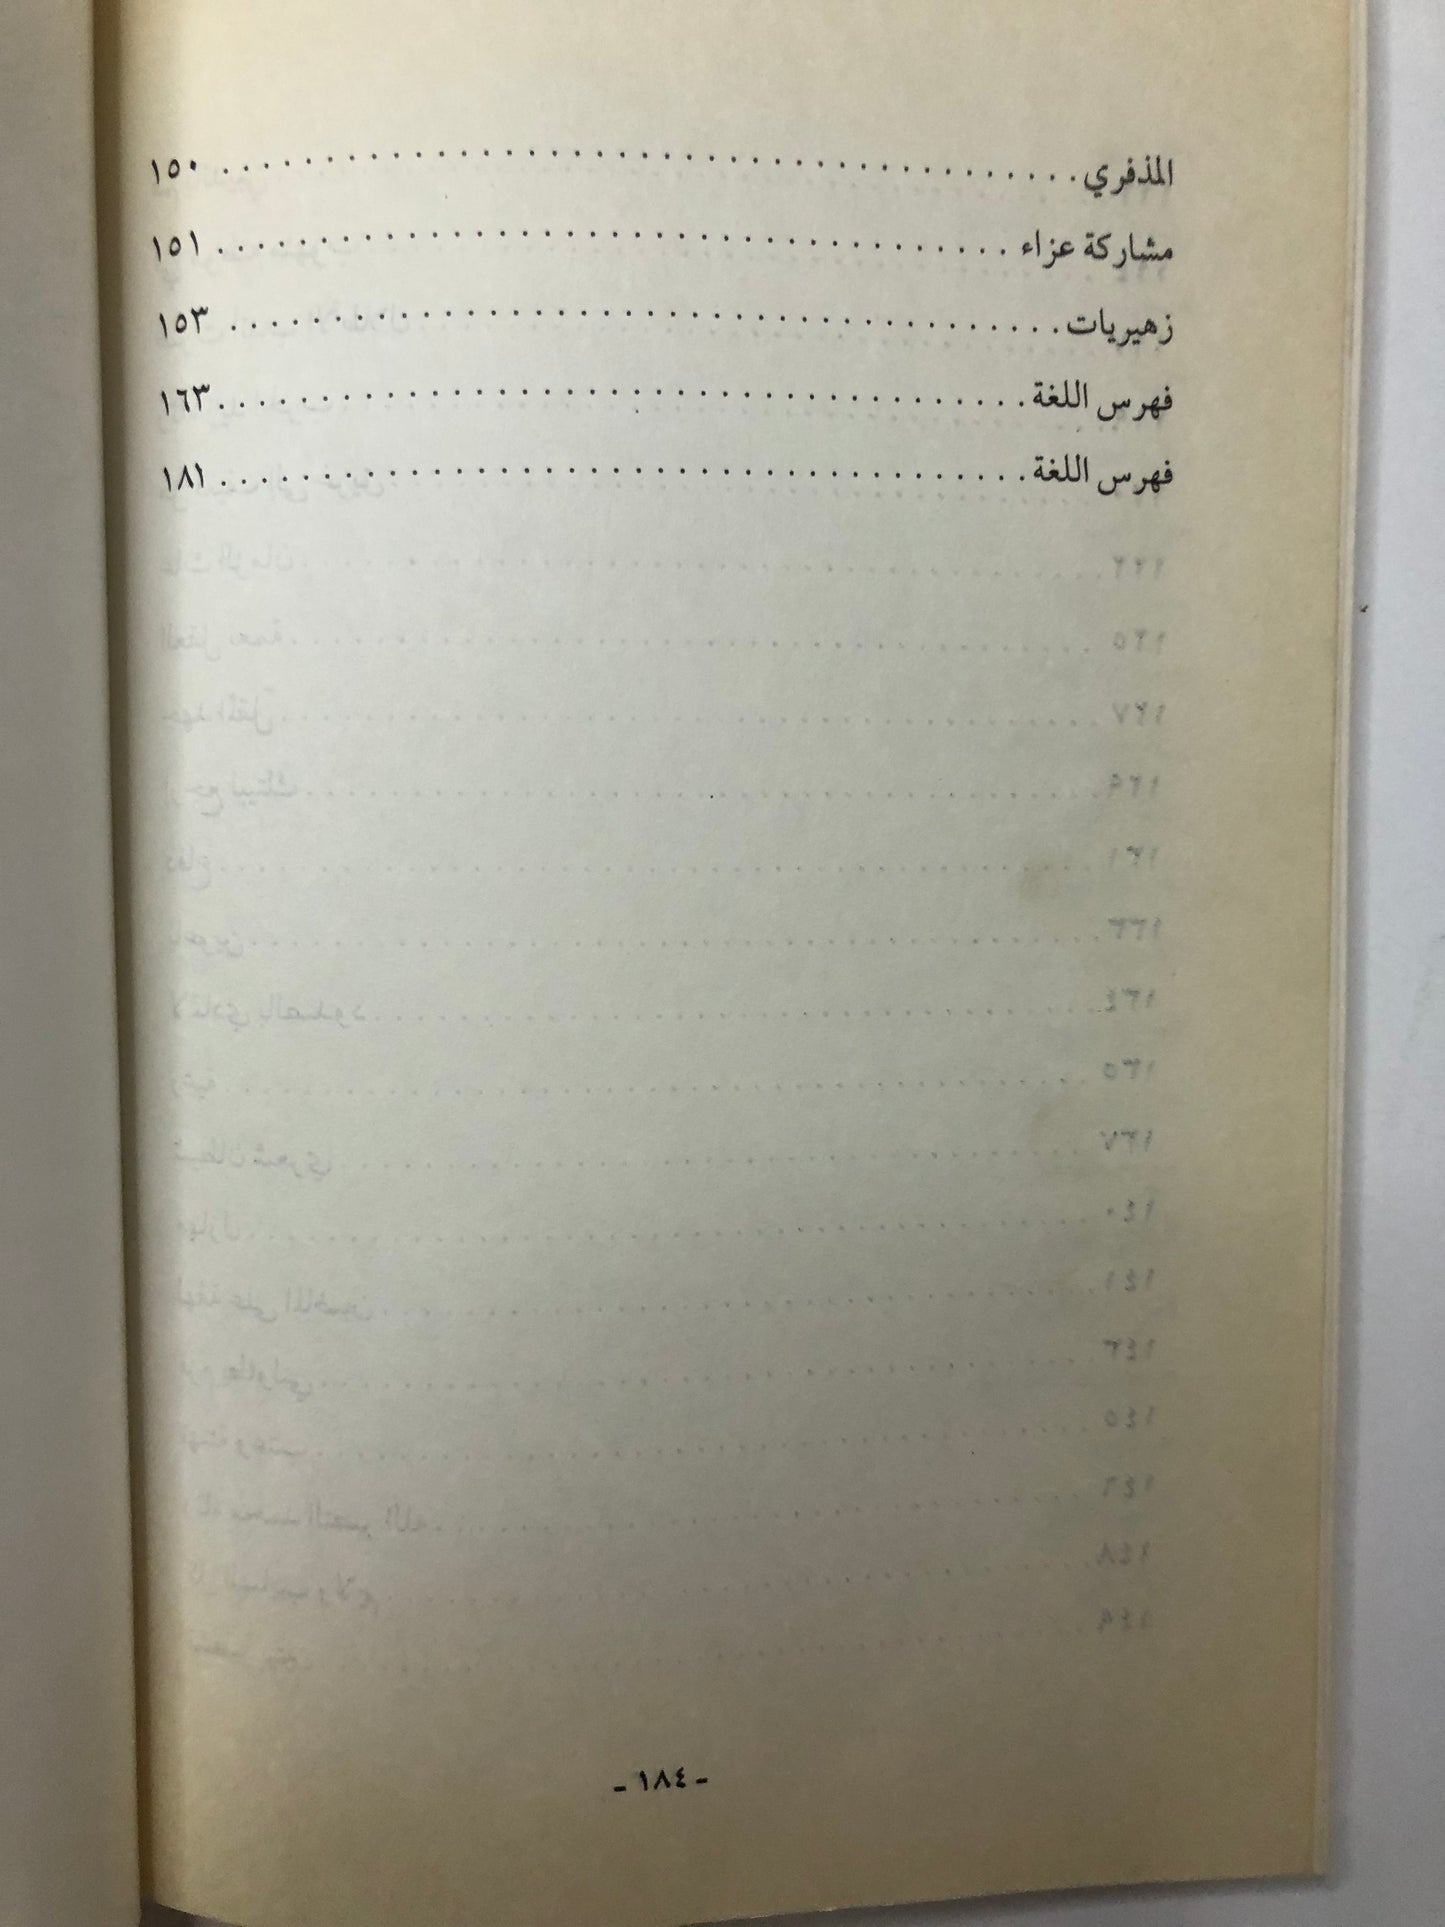 المذفري . . . . . . . . . . . . . . . . . . . . . . . . . . . . . . . . . . . . . . . . ١٥٠
مشاركة عزاء . . . . . . . . . . . . . . . . . . . . . . . . . . . . . . . . . . . . . . ١٥١
زهيريات . . . . . . . . . . . . . . . . . . . . . . . . . . . . . . . . . . . . . . . . ١٥٣
فهرس اللغة . . . . . . . . . . . . . . . . . . . . . . . . . . . . . . . . . . . . . . . ١٦٣
فهرس اللغة . . . . . . . . . . . . . . . . . . . . . . . . . . . . . . . . . . . . . . . ١٨١
- ١٨٤ -